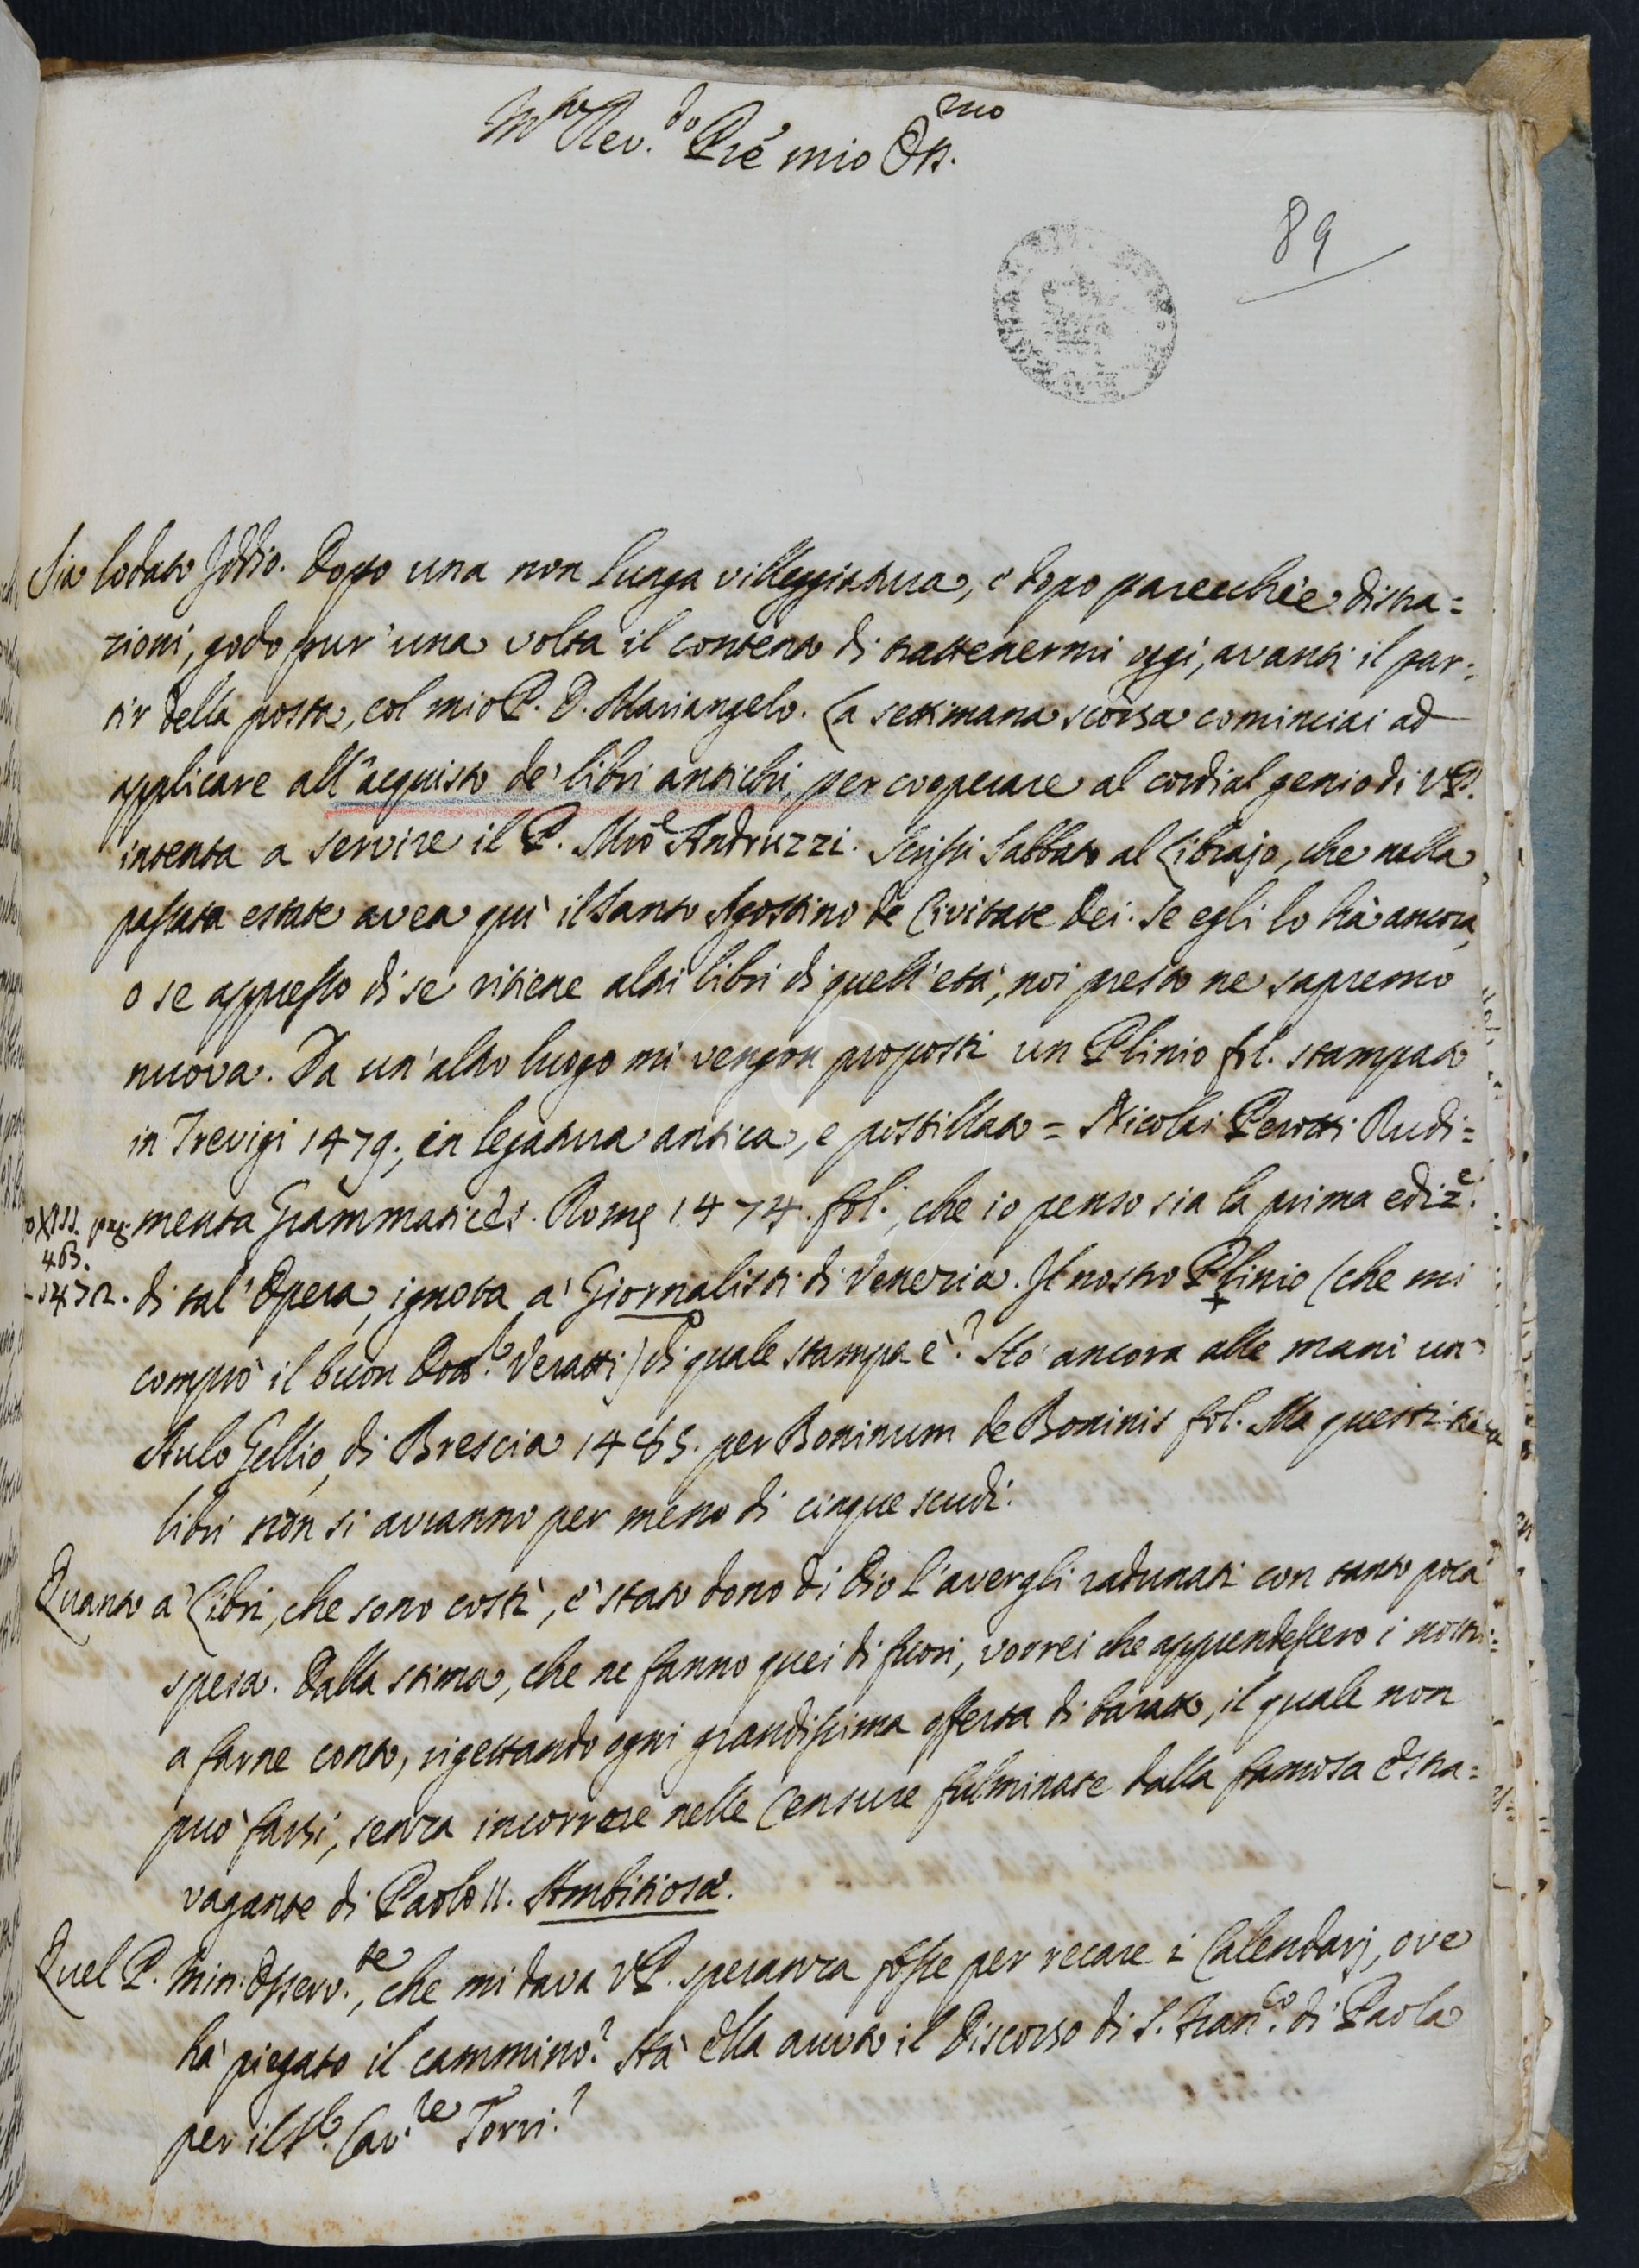 M.to Rev.do Pre mio Oss.mo
89
Sia lodato Iddio. Dopo una non lunga villeggiatura, e dopo parecchie distra=
zioni, godo pur' una volta il contento di trattenermi oggi, avanti il par=
tir della posta, col mio P. D. Mariangelo. La settimana scorsa cominciai ad
applicare all'acquisto de' libri antichi, per cooperare al cordial genio di V.P.
intenta a servire il P. Mro Andruzzi. Scrissi Sabbato al Librajo, che nella
passata estate avea quì il Santo Agostino de Civitate Dei. Se egli lo hà ancora,
o se appresso di se ritiene altri libri di quell'età, noi presto ne sapremo
nuova. Da un'altro luogo mi vengon proposti un Plinio fol. stampato
in Trevigi 1479., in legatura antica, e postillato = Nicolai Perotti Rudi=
menta Grammatices. Romę 1474. fol., che io penso sia la prima ediz.e
XIII. pag.
463.
1472.
di tal' Opera, ignota a' Giornalisti di Venezia. Il nostro Plinio (che mi
comprò il buon Dott.r Veratti) di quale stampa è? Hò ancora alle mani un
Aulo Gellio, di Brescia 1485. per Boninum de Boninis fol. Ma questi
libri non si avranno per meno di cinque scudi.
Quanto a' Libri, che sono costì, è stato dono di Dio l'avergli radunati con tanto poca
spesa. Dalla stima, che ne fanno quei di fuori, vorrei che apprendessero i nostri
a farne conto, rigettando ogni grandissima offerta di baratto, il quale non
può farsi, senza incorrere nelle Censure fulminate dalla famosa Estra=
vagante di Paolo II. Ambitiosæ.
Quel P. Min. Osserv.te, che mi dava V.P. speranza fosse per recare i Calendarj, ove
hà piegato il cammino? Hà Ella avuto il Discorso di S. Fran.co di Paola
per il Sr. Cav.re Torri?